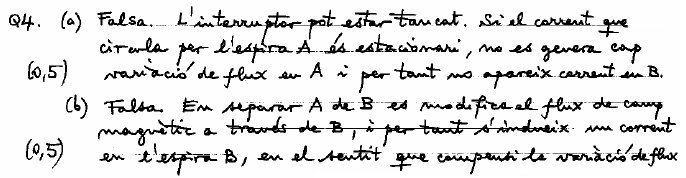 Q4. (a) Falsa. L'interruptor pot estar tancat. Si el corrent que
circula per l'espira A és estacionari, no es genera cap
(0,5) variàció de flux en A i per tant no apareix corrent en B.
(b) Falsa. En separar A de B es modifica el flux de camp
magnètic a través de B, i per tant s'indueix un corrent
(0,5) en l'espira B, en el sentit que compensi la variàció de flux